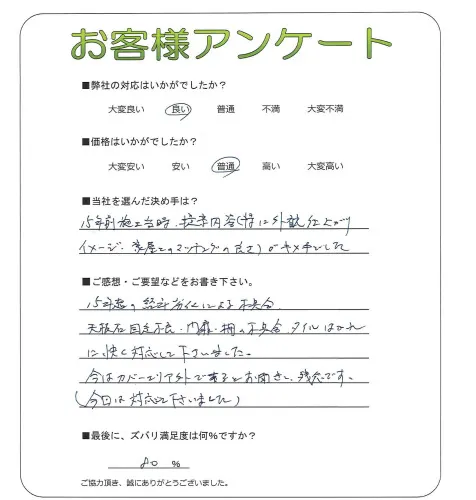 お客様アンケート
■弊社の対応はいかがでしたか？
大変良い 良い 普通 不満 大変不満
■価格はいかがでしたか？
大変安い 安い 普通 高い 大変高い
■当社を選んだ決め手は？
15年前施工当時、提案内容(特に外観仕上がり
イメージ、家屋とのマッチングの良さ)がキメ手でした
■ご感想・ご要望などをお書き下さい。
15年超の経年劣化による不具合、
天板石固定不良、門扉・柵の不具合、タイルはがれ
に快く対応して下さいました。
今はカバーエリア外であるとお聞きし、残念です。
(今回は対応して下さいました)
■最後に、ズバリ満足度は何%ですか？
80 %
ご協力頂き、誠にありがとうございました。